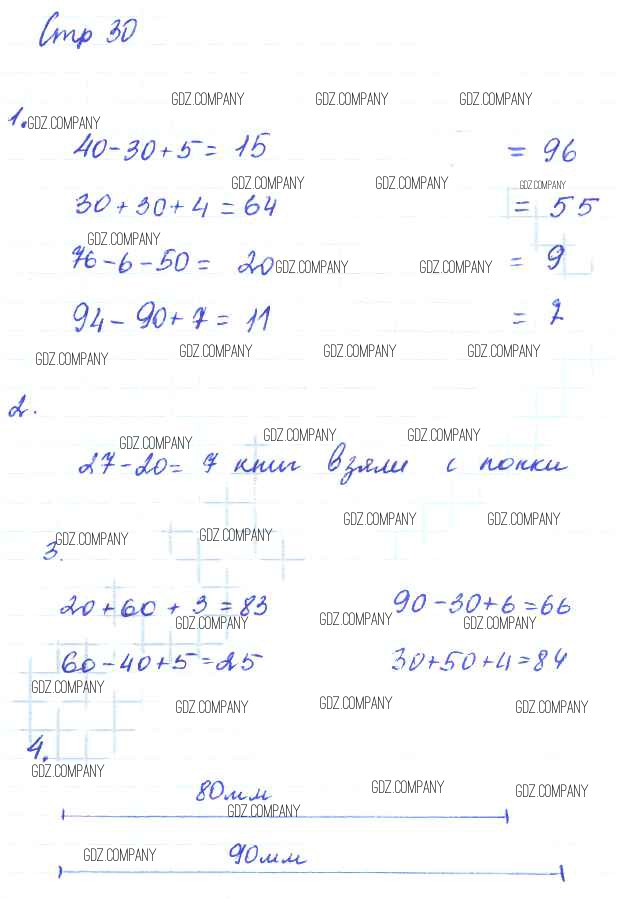 Стр 30
GDZ.COMPANY GDZ.COMPANY GDZ.COMPANY
1. GDZ.COMPANY
40-30+5= 15 = 96
GDZ.COMPANY GDZ.COMPANY GDZ.COMPANY
30+30+4=64 = 55
GDZ.COMPANY
76-6-50= 20 GDZ.COMPANY GDZ.COMPANY = 9
94-90+7= 11 = 7
GDZ.COMPANY GDZ.COMPANY GDZ.COMPANY GDZ.COMPANY
2.
GDZ.COMPANY GDZ.COMPANY GDZ.COMPANY
27-20= 7 книг взяли с полки
GDZ.COMPANY GDZ.COMPANY
GDZ.COMPANY GDZ.COMPANY
3.
20+60+3=83 90-30+6=66
GDZ.COMPANY GDZ.COMPANY GDZ.COMPANY
60-40+5=25 30+50+4=84
GDZ.COMPANY
GDZ.COMPANY GDZ.COMPANY GDZ.COMPANY
4.
GDZ.COMPANY
80мм GDZ.COMPANY GDZ.COMPANY
GDZ.COMPANY
GDZ.COMPANY 90мм